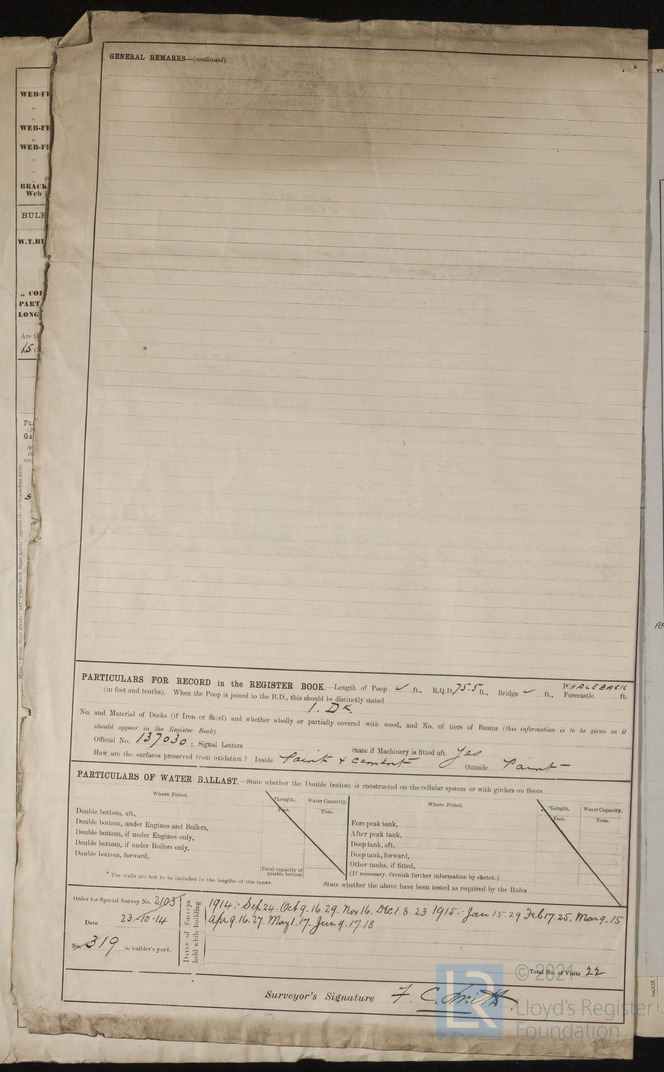 GENERAL REMARKS—(continued).
WEB-FR
WEB-FR
WEB-FR
BRACK
Web
BULK
W.T.BU
„ COL
PART
LONG
15
PARTICULARS FOR RECORD in the REGISTER BOOK.—Length of Poop ✓ ft., R.Q.D. 75.5 ft., Bridge ✓ ft., WHALEBACK Forecastle ft.
(in feet and tenths). When the Poop is joined to the B.D., this should be distinctly stated
1. Dk.
No. and Material of Decks (if Iron or Steel) and whether wholly or partially covered with wood, and No. of tiers of Beams (this information is to be given as it
should appear in the Register Book)
Official No. 137030 ; Signal Letters State if Machinery is fitted aft Yes
How are the surfaces preserved from oxidation? Inside Paint & cement Outside Paint
PARTICULARS OF WATER BALLAST.—State whether the Double bottom is constructed on the cellular system or with girders on floors
Where Fitted. *Length. Water Capacity. Where Fitted. *Length. Water Capacity.
Feet. Tons. Feet. Tons.
Double bottom, aft, Fore peak tank,
Double bottom, under Engines and Boilers, After peak tank,
Double bottom, if under Engines only, Deep tank, aft,
Double bottom, if under Boilers only, Deep tank, forward,
Double bottom, forward, Other tanks, if fitted,
Total capacity of double bottom (If necessary, furnish further information by sketch.)
* The wells are not to be included in the lengths of the tanks. State whether the above have been tested as required by the Rules
Order for Special Survey No. 2103
Date 23.10.14
No. 319 in builder's yard.
Dates of Surveys held while building
1914:- Sep 24. Oct 9. 16. 29. Nov 16. Dec 1. 8. 23 1915:- Jan 15. 29 Feb 17. 25. Mar 9. 15
Apr 9. 16. 27. May 1. 17. Jun 9. 17. 18
Total No. of Visits 22
Surveyor's Signature F. C. Smith.
© 2021
LR
Lloyd's Register
Foundation